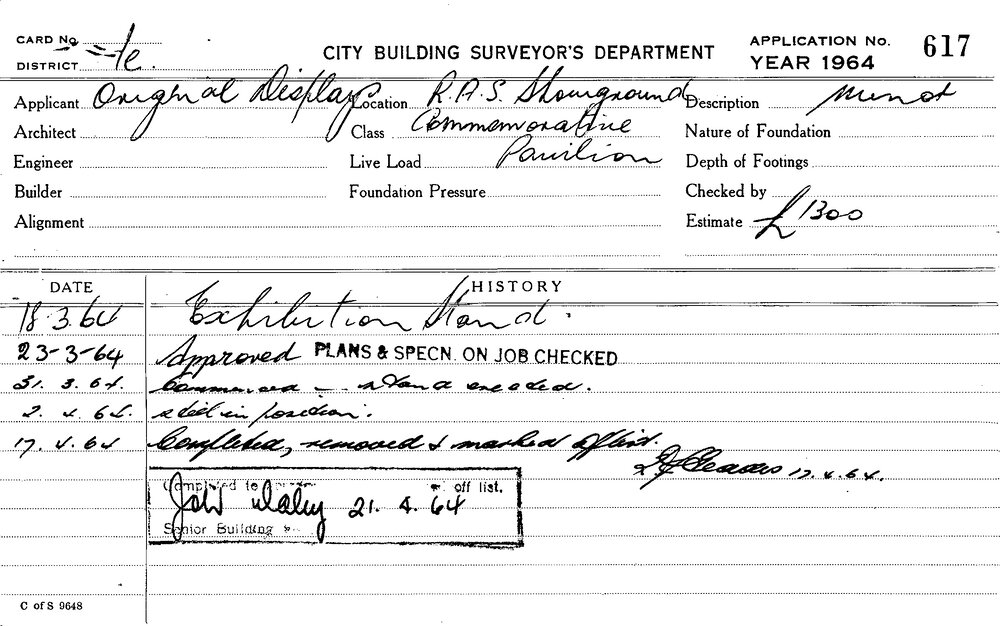 CARD No.
DISTRICT
CITY BUILDING SURVEYOR'S DEPARTMENT
APPLICATION No. 617
YEAR 1964
Applicant Original Displays Location R.A.S. Showground Description
Architect Class Commemorative Nature of Foundation
Engineer Live Load Pavilion Depth of Footings
Builder Foundation Pressure Checked by
Alignment Estimate £1300
DATE HISTORY
18.3.64 Exhibition Stand.
23-3-64 Approved PLANS & SPECN. ON JOB CHECKED
31. 3. 64. Commenced - stand erected.
2. 4. 64. still in position.
17. 4. 64 Completed, removed & marked off list.
17.4.64.
Completed to off list.
John Daley 21. 4. 64
Senior Building
C of S 9648